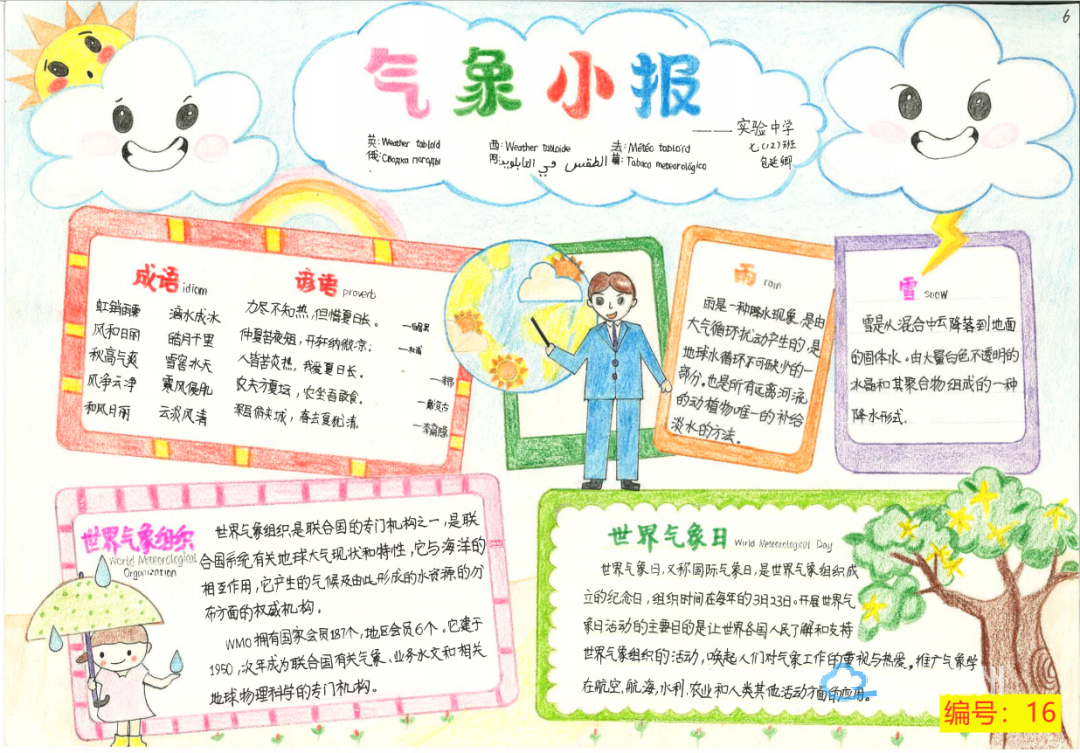 6
气象小报
——实验中学
七(12)班
英: Weather tabloid 西: Weather tabloide 法: Météo tabloïd
俄: Сводка погоды 阿: الطقس في التابلويد 葡: Tabaco meteorológico
成语 idiom
谚语 proverb
滴水成冰
风和日丽 皓月千里
秋高气爽 雪窖冰天
风净云净
和风日丽 云淡风清
力尽不知热,但惜夏日长。
仲夏苦夜短,开轩纳微凉;
人皆苦炎热,我爱夏日长。
雨 rain
雨是一种降水现象,是由
大气循环扰动产生的,是
地球水循环不可缺少的一
部分,也是所有远离河流
的动植物唯一的补给
淡水的方法。
雪 snow
雪是从混合中云降落到地面
的固体水。由大量白色不透明的
冰晶和其聚合物组成的一种
降水形式.
世界气象组织
World Meteorological
Organization
世界气象组织是联合国的专门机构之一,是联
合国系统有关地球大气现状和特性,它与海洋的
相互作用,它产生的气候及由此形成的水资源的分
布方面的权威机构。
WMO拥有国家会员187个,地区会员6个。它建于
1950,次年成为联合国有关气象、业务水文和相关
地球物理科学的专门机构。
世界气象日 World Meteorological Day
世界气象日,又称国际气象日,是世界气象组织成
立的纪念日,组织时间在每年的3月23日。开展世界气
象日活动的主要目的是让世界各国人民了解和支持
世界气象组织的活动,唤起人们对气象工作的重视与热爱。推广气象学
在航空,航海,水利,农业和人类其他活动方面的应用。
编号:16